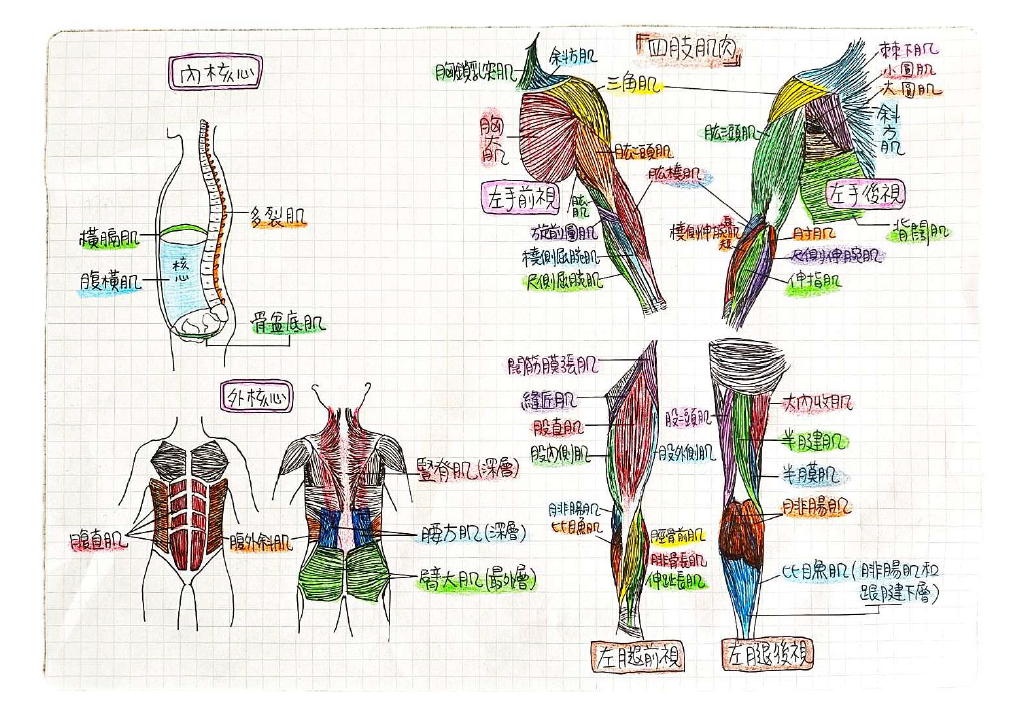 內核心
橫膈肌
腹橫肌
核心
多裂肌
骨盆底肌
外核心
腹直肌
腹外斜肌
豎脊肌(深層)
腰方肌(深層)
臀大肌(最外層)
四肢肌肉
胸鎖乳突肌
斜方肌
三角肌
胸大肌
肱二頭肌
肱橈肌
左手前視
肱肌
旋前圓肌
橈側屈腕肌
尺側屈腕肌
棘下肌
小圓肌
大圓肌
斜方肌
肱三頭肌
左手後視
橈側伸腕肌
長
短
肘肌
背闊肌
尺側伸腕肌
伸指肌
闊筋膜張肌
縫匠肌
股直肌
股內側肌
股外側肌
腓腸肌
比目魚肌
脛骨前肌
腓骨長肌
伸趾長肌
左腿前視
股二頭肌
大內收肌
半腱肌
半膜肌
腓腸肌
比目魚肌(腓腸肌和
跟腱下層)
左腿後視